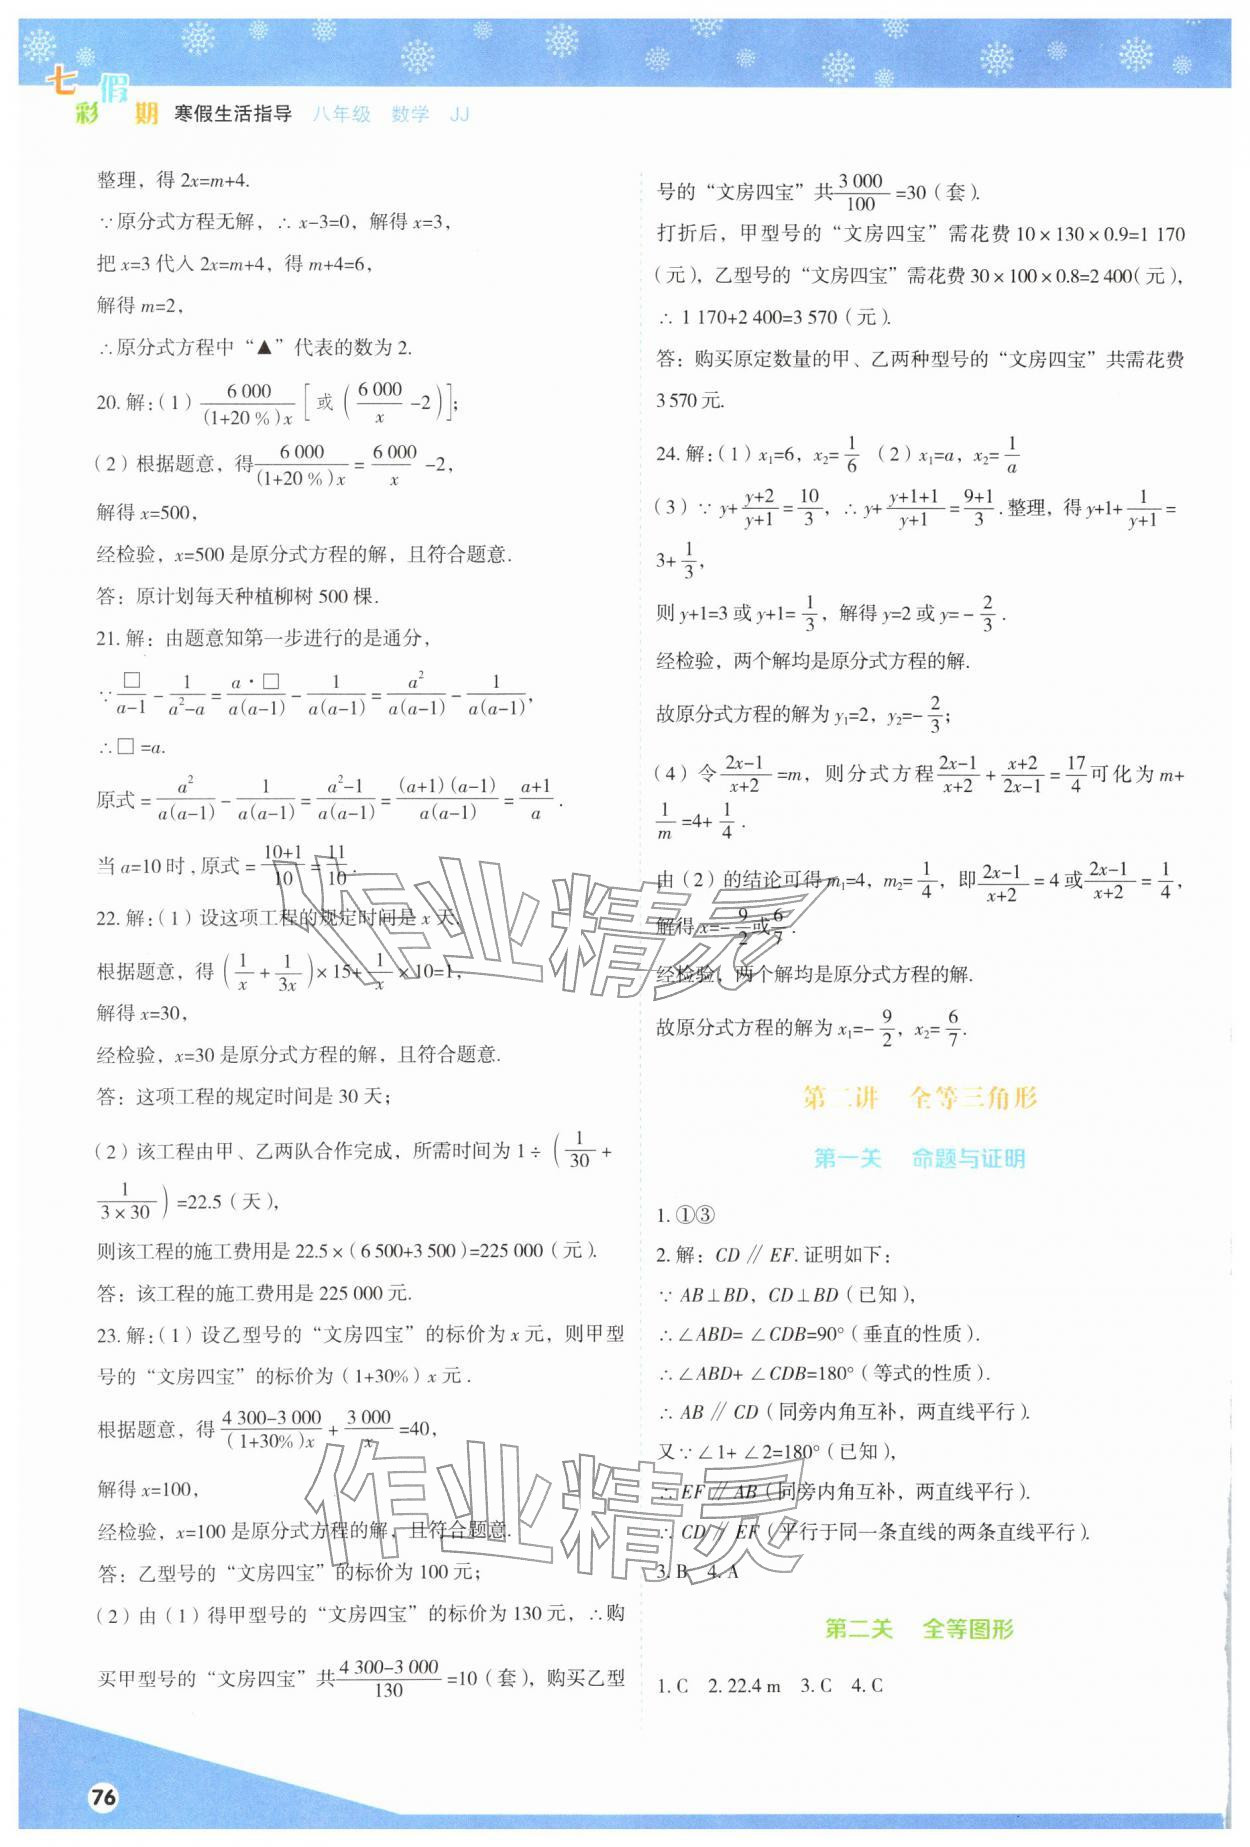 七彩假期 寒假生活指导 八年级 数学 JJ
整理，得 2x=m+4.
∵原分式方程无解，∴ x-3=0，解得 x=3，
把 x=3 代入 2x=m+4，得 m+4=6，
解得 m=2，
∴原分式方程中“▲”代表的数为 2.
20. 解：（1）6 000/(1+20 %)x [或(6 000/x -2)]；
（2）根据题意，得 6 000/(1+20 %)x = 6 000/x -2，
解得 x=500，
经检验，x=500 是原分式方程的解，且符合题意.
答：原计划每天种植柳树 500 棵.
21. 解：由题意知第一步进行的是通分，
∵ □/(a-1) - 1/(a²-a) = a·□/a(a-1) - 1/a(a-1) = a²/a(a-1) - 1/a(a-1)，
∴□ =a.
原式 = a²/a(a-1) - 1/a(a-1) = (a²-1)/a(a-1) = (a+1)(a-1)/a(a-1) = (a+1)/a .
当 a=10 时，原式 = (10+1)/10 = 11/10 .
22. 解：（1）设这项工程的规定时间是 x 天.
根据题意，得 (1/x + 1/3x) × 15+ 1/x × 10=1，
解得 x=30，
经检验，x=30 是原分式方程的解，且符合题意.
答：这项工程的规定时间是 30 天；
（2）该工程由甲、乙两队合作完成，所需时间为 1 ÷ (1/30 +
1/(3 × 30)) =22.5（天），
则该工程的施工费用是 22.5 ×（6 500+3 500）=225 000（元）.
答：该工程的施工费用是 225 000 元.
23. 解：（1）设乙型号的“文房四宝”的标价为 x 元，则甲型
号的“文房四宝”的标价为（1+30%）x 元 .
根据题意，得 (4 300-3 000)/(1+30%)x + 3 000/x =40，
解得 x=100，
经检验，x=100 是原分式方程的解，且符合题意.
答：乙型号的“文房四宝”的标价为 100 元；
（2）由（1）得甲型号的“文房四宝”的标价为 130 元，∴购
买甲型号的“文房四宝”共 (4 300-3 000)/130 =10（套），购买乙型
76
号的“文房四宝”共 3 000/100 =30（套）.
打折后，甲型号的“文房四宝”需花费 10 × 130 × 0.9=1 170
（元），乙型号的“文房四宝”需花费 30 × 100 × 0.8=2 400（元），
∴ 1 170+2 400=3 570（元）.
答：购买原定数量的甲、乙两种型号的“文房四宝”共需花费
3 570 元.
24. 解：（1）x₁=6，x₂= 1/6 （2）x₁=a，x₂= 1/a
（3）∵ y+ (y+2)/(y+1) = 10/3，∴ y+ (y+1+1)/(y+1) = (9+1)/3 . 整理，得 y+1+ 1/(y+1) =
3+ 1/3，
则 y+1=3 或 y+1= 1/3，解得 y=2 或 y= - 2/3 .
经检验，两个解均是原分式方程的解.
故原分式方程的解为 y₁=2，y₂=- 2/3；
（4）令 (2x-1)/(x+2) =m，则分式方程 (2x-1)/(x+2) + (x+2)/(2x-1) = 17/4 可化为 m+
1/m =4+ 1/4 .
由（2）的结论可得 m₁=4，m₂= 1/4，即 (2x-1)/(x+2) = 4 或 (2x-1)/(x+2) = 1/4，
解得 x=- 9/2 或 6/7 .
经检验，两个解均是原分式方程的解.
故原分式方程的解为 x₁=- 9/2，x₂= 6/7.
第二讲 全等三角形
第一关 命题与证明
1. ①③
2. 解：CD ∥ EF. 证明如下：
∵ AB⊥BD，CD⊥BD（已知），
∴∠ABD= ∠CDB=90°（垂直的性质）.
∴∠ABD+ ∠CDB=180°（等式的性质）.
∴ AB ∥ CD（同旁内角互补，两直线平行）.
又∵∠1+ ∠2=180°（已知），
∴ EF ∥ AB（同旁内角互补，两直线平行）.
∴ CD ∥ EF（平行于同一条直线的两条直线平行）.
3. B 4. A
第二关 全等图形
1. C 2. 22.4 m 3. C 4. C
作业精灵
作业精灵